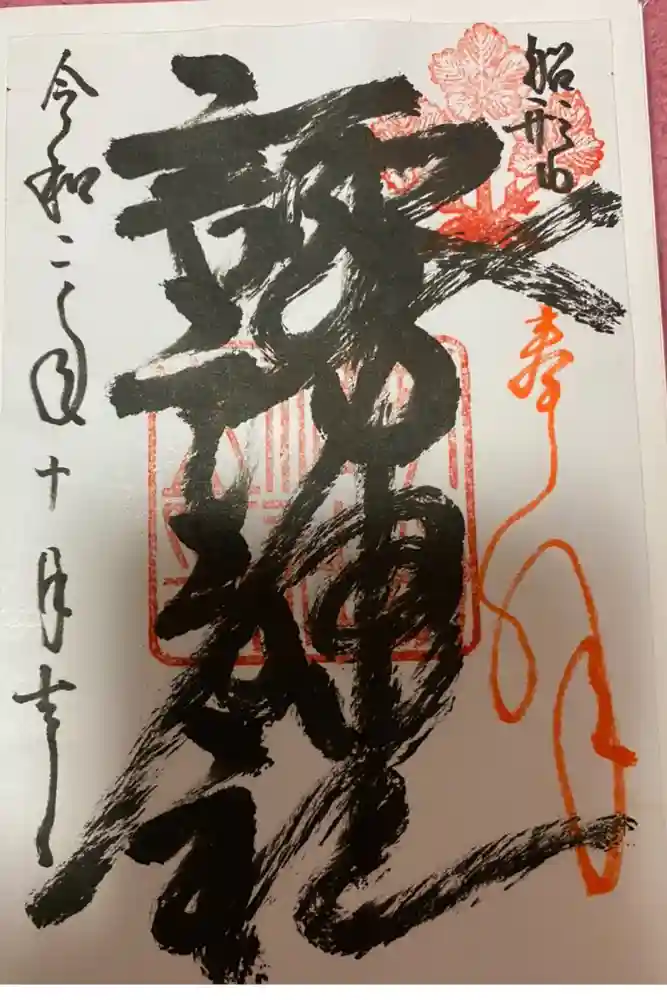 船形山
奉拝
諏訪神社
令和二年十月吉日